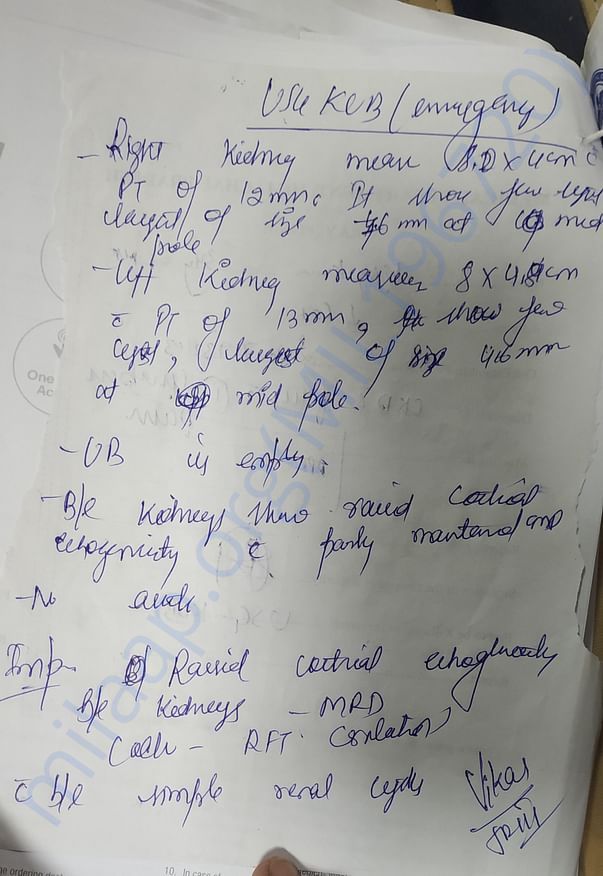 USG KUB (emergency)
- Right Kidney mean 8.0 x 4cm c̄
PT of 12mm. It show few cyst
largest of size 46 mm at mid
pole
- Left Kidney measures 8 x 4.8cm
c̄ PT of 13mm, show few
cyst, largest of size 46mm
at mid pole.
- UB is empty.
- B/L Kidneys show raised cortical
echogenicity c̄ partly maintained CMD
- No
Imp- Raised cortical echogenicity
B/L Kidneys - MRD
- RFT Correlation
c̄ b/l simple renal cysts
Vikas
JRIII
milaap.org
One
Ac
10. In case of